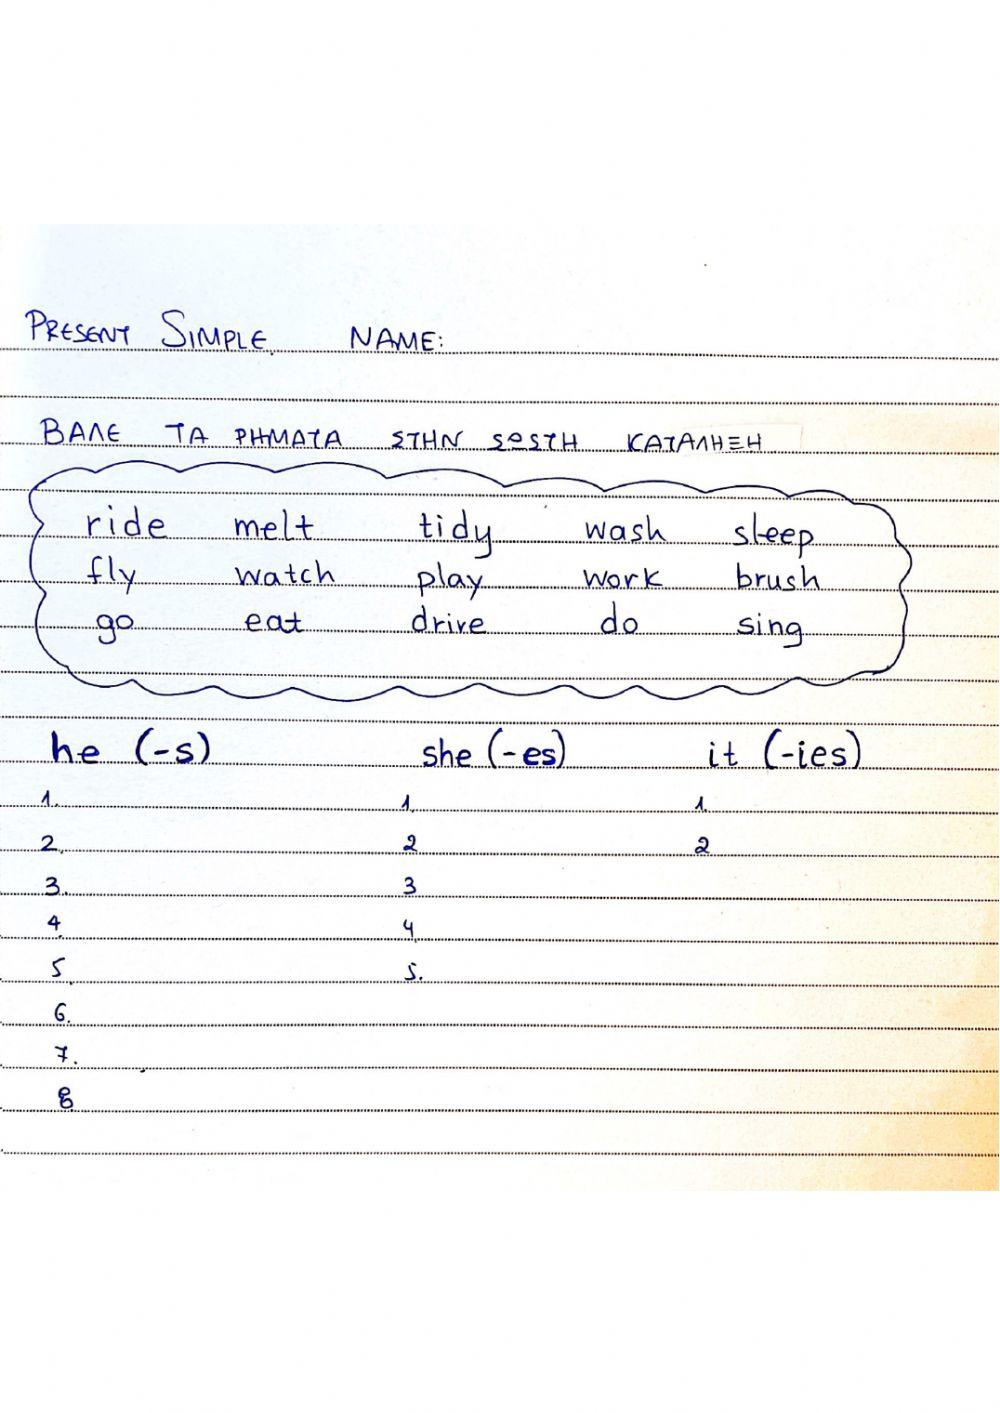 PRESENT SIMPLE NAME:
ΒΑΛΕ ΤΑ ΡΗΜΑΤΑ ΣΤΗΝ SΩSTH ΚΑΤΑΛΗΞΗ
ride melt tidy wash sleep
fly watch play work brush
go eat drive do sing
he (-s) she (-es) it (-ies)
1. 1. 1.
2. 2 2
3. 3
4 4
5 5.
6.
7.
8